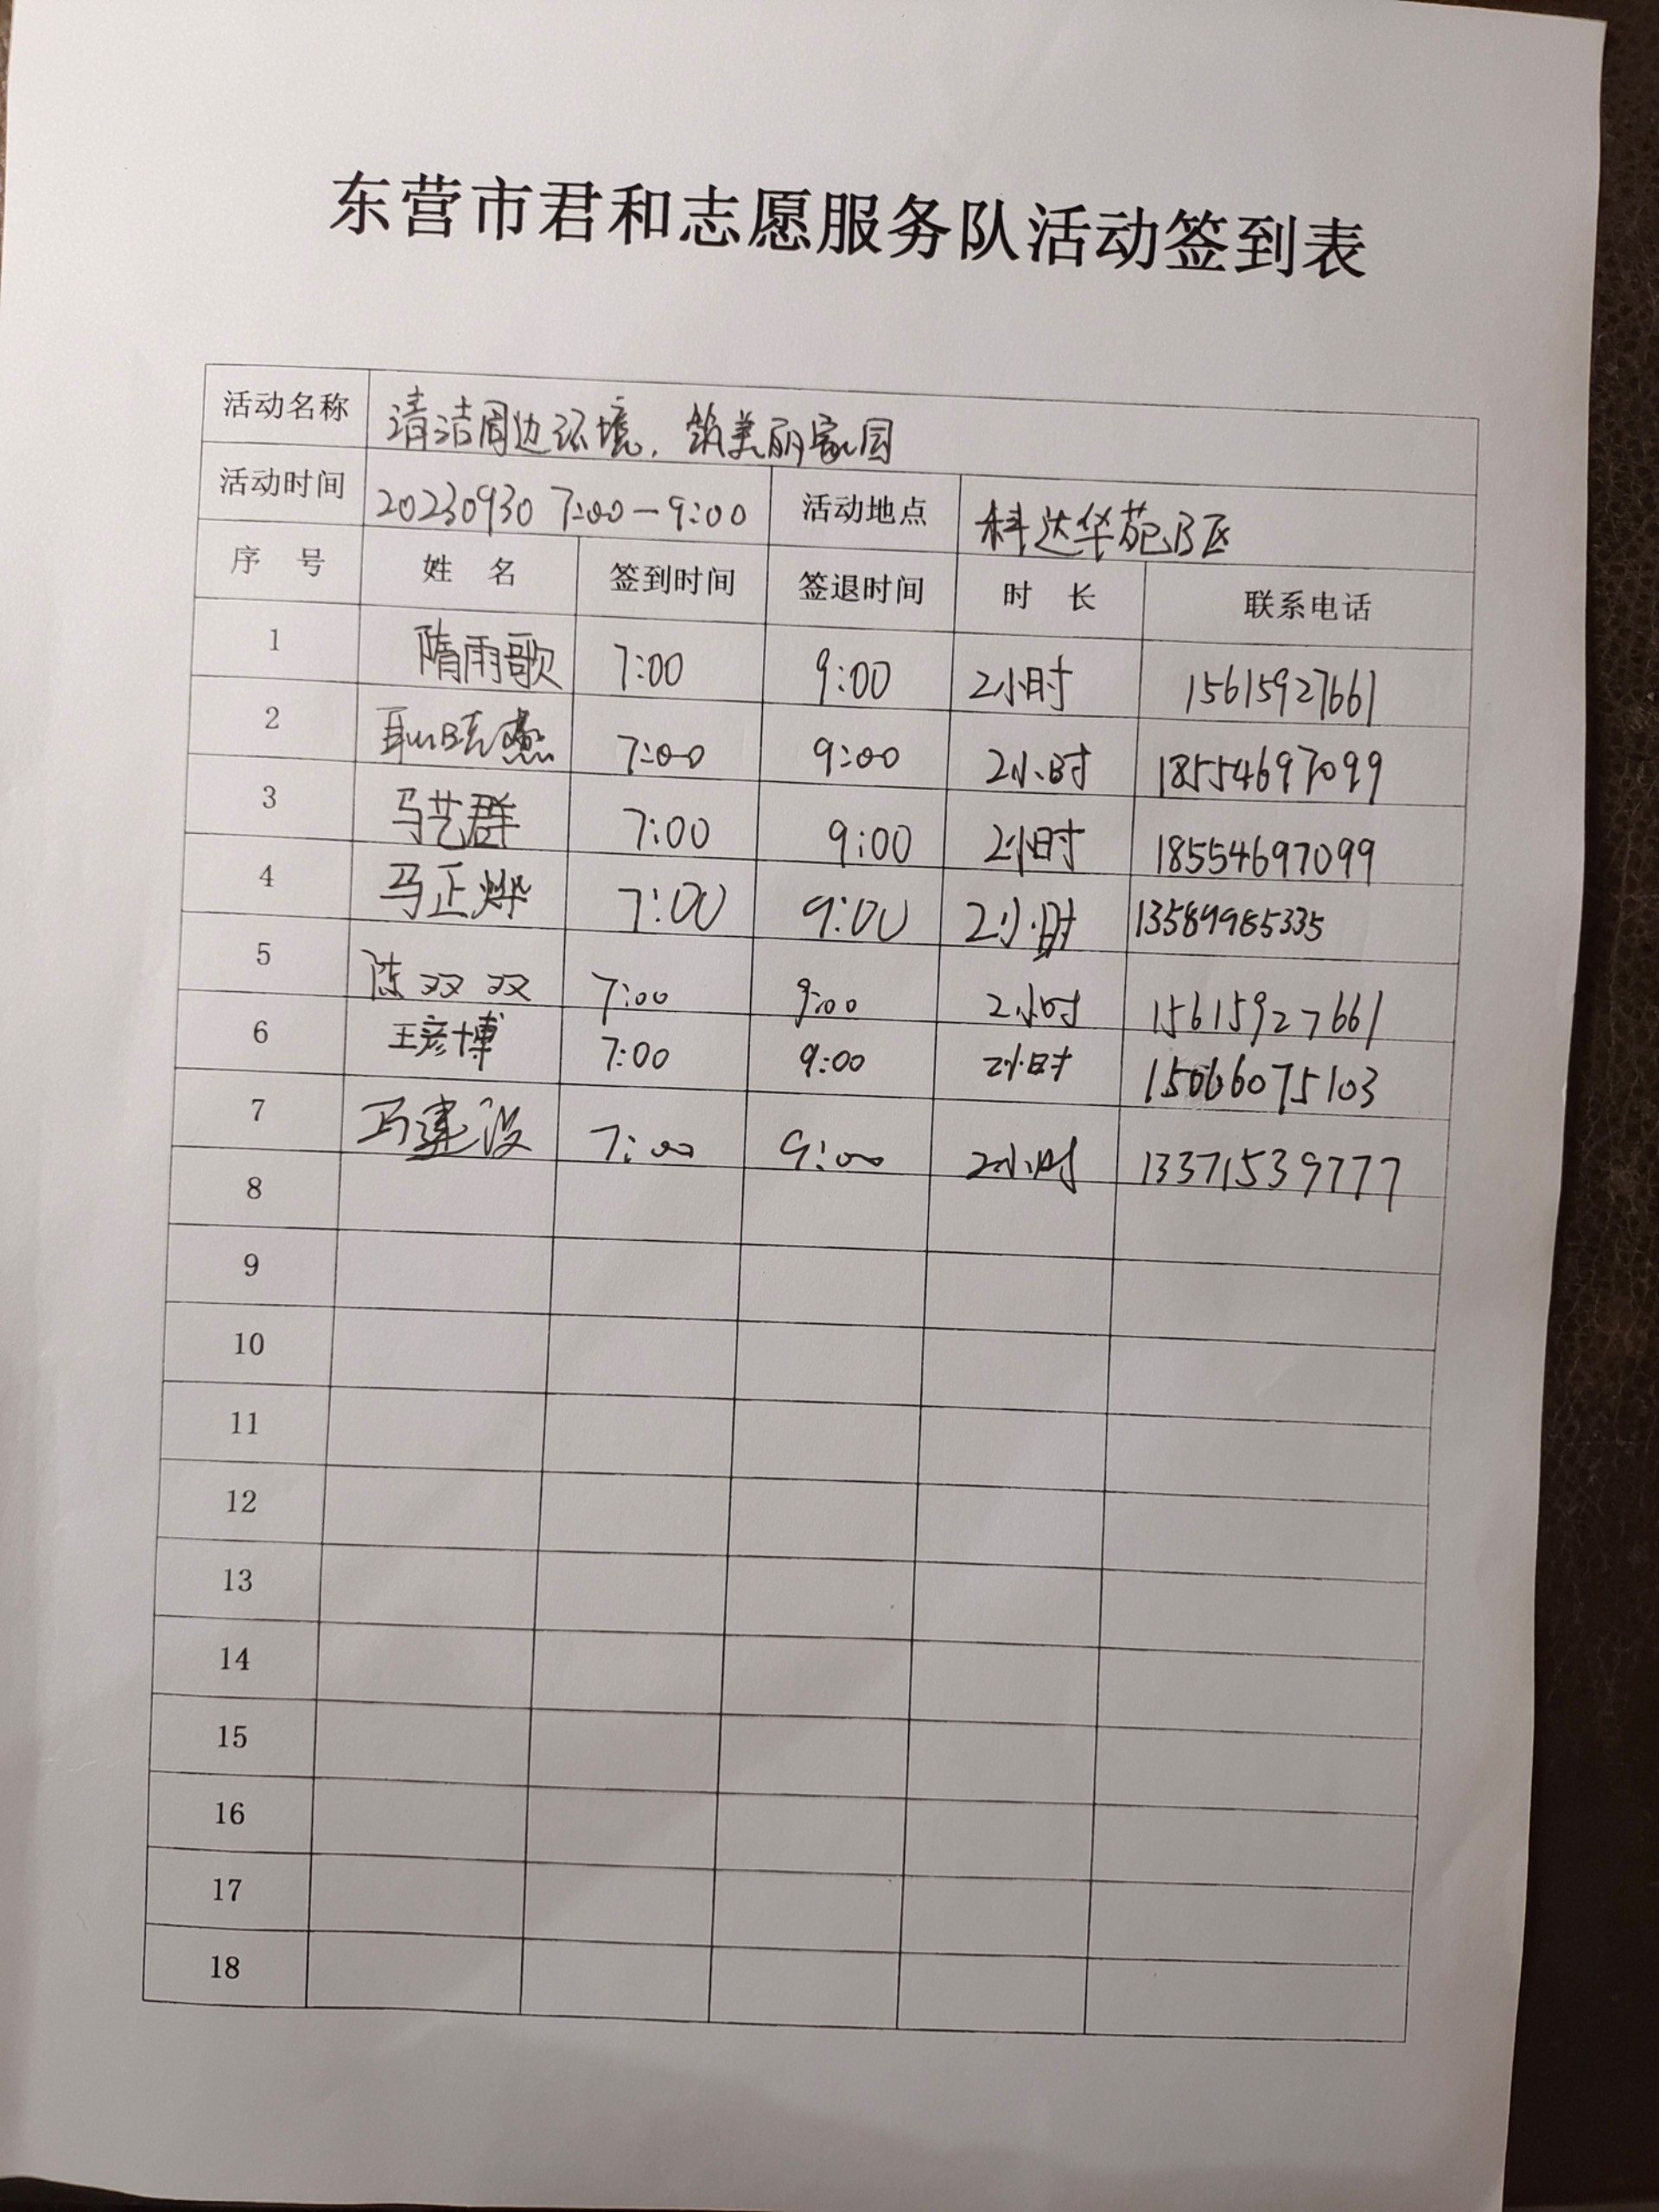 东营市君和志愿服务队活动签到表
活动名称 清洁周边环境，筑美丽家园
活动时间 20230930 7:00-9:00 活动地点 科达华苑B区
序 号 姓 名 签到时间 签退时间 时 长 联系电话
1 隋雨歌 7:00 9:00 2小时 15615927661
2 7:00 9:00 2小时 18554697099
3 马艺群 7:00 9:00 2小时 18554697099
4 马正烨 7:00 9:00 2小时 13589985335
5 陈双双 7:00 9:00 2小时 15615927661
6 王彦博 7:00 9:00 2小时 15066075103
7 马建波 7:00 9:00 2小时 13371539777
8
9
10
11
12
13
14
15
16
17
18